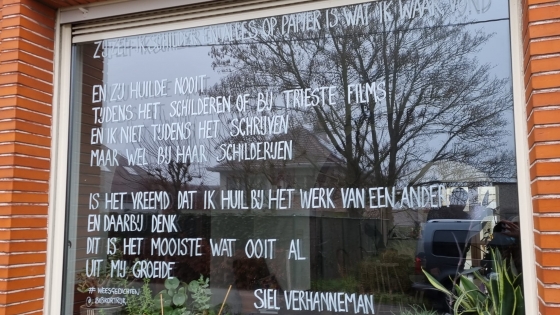 EN NEES OP PAPIER IS WAT IK
EN ZIJ HUILDE NOOIT
TIJDENS HET SCHILDEREN OF BIJ TRIESTE FILMS
EN IK NIET TIJDENS HET SCHRIJVEN
MAAR WEL BIJ HAAR SCHILDERIJEN
IS HET VREEMD DAT IK HUIL BIJ HET WERK VAN EEN ANDER
EN DAARBIJ DENK
DIT IS HET MOOISTE WAT OOIT AL
UIT MIJ GROEIDE
SIEL VERHANNEMAN